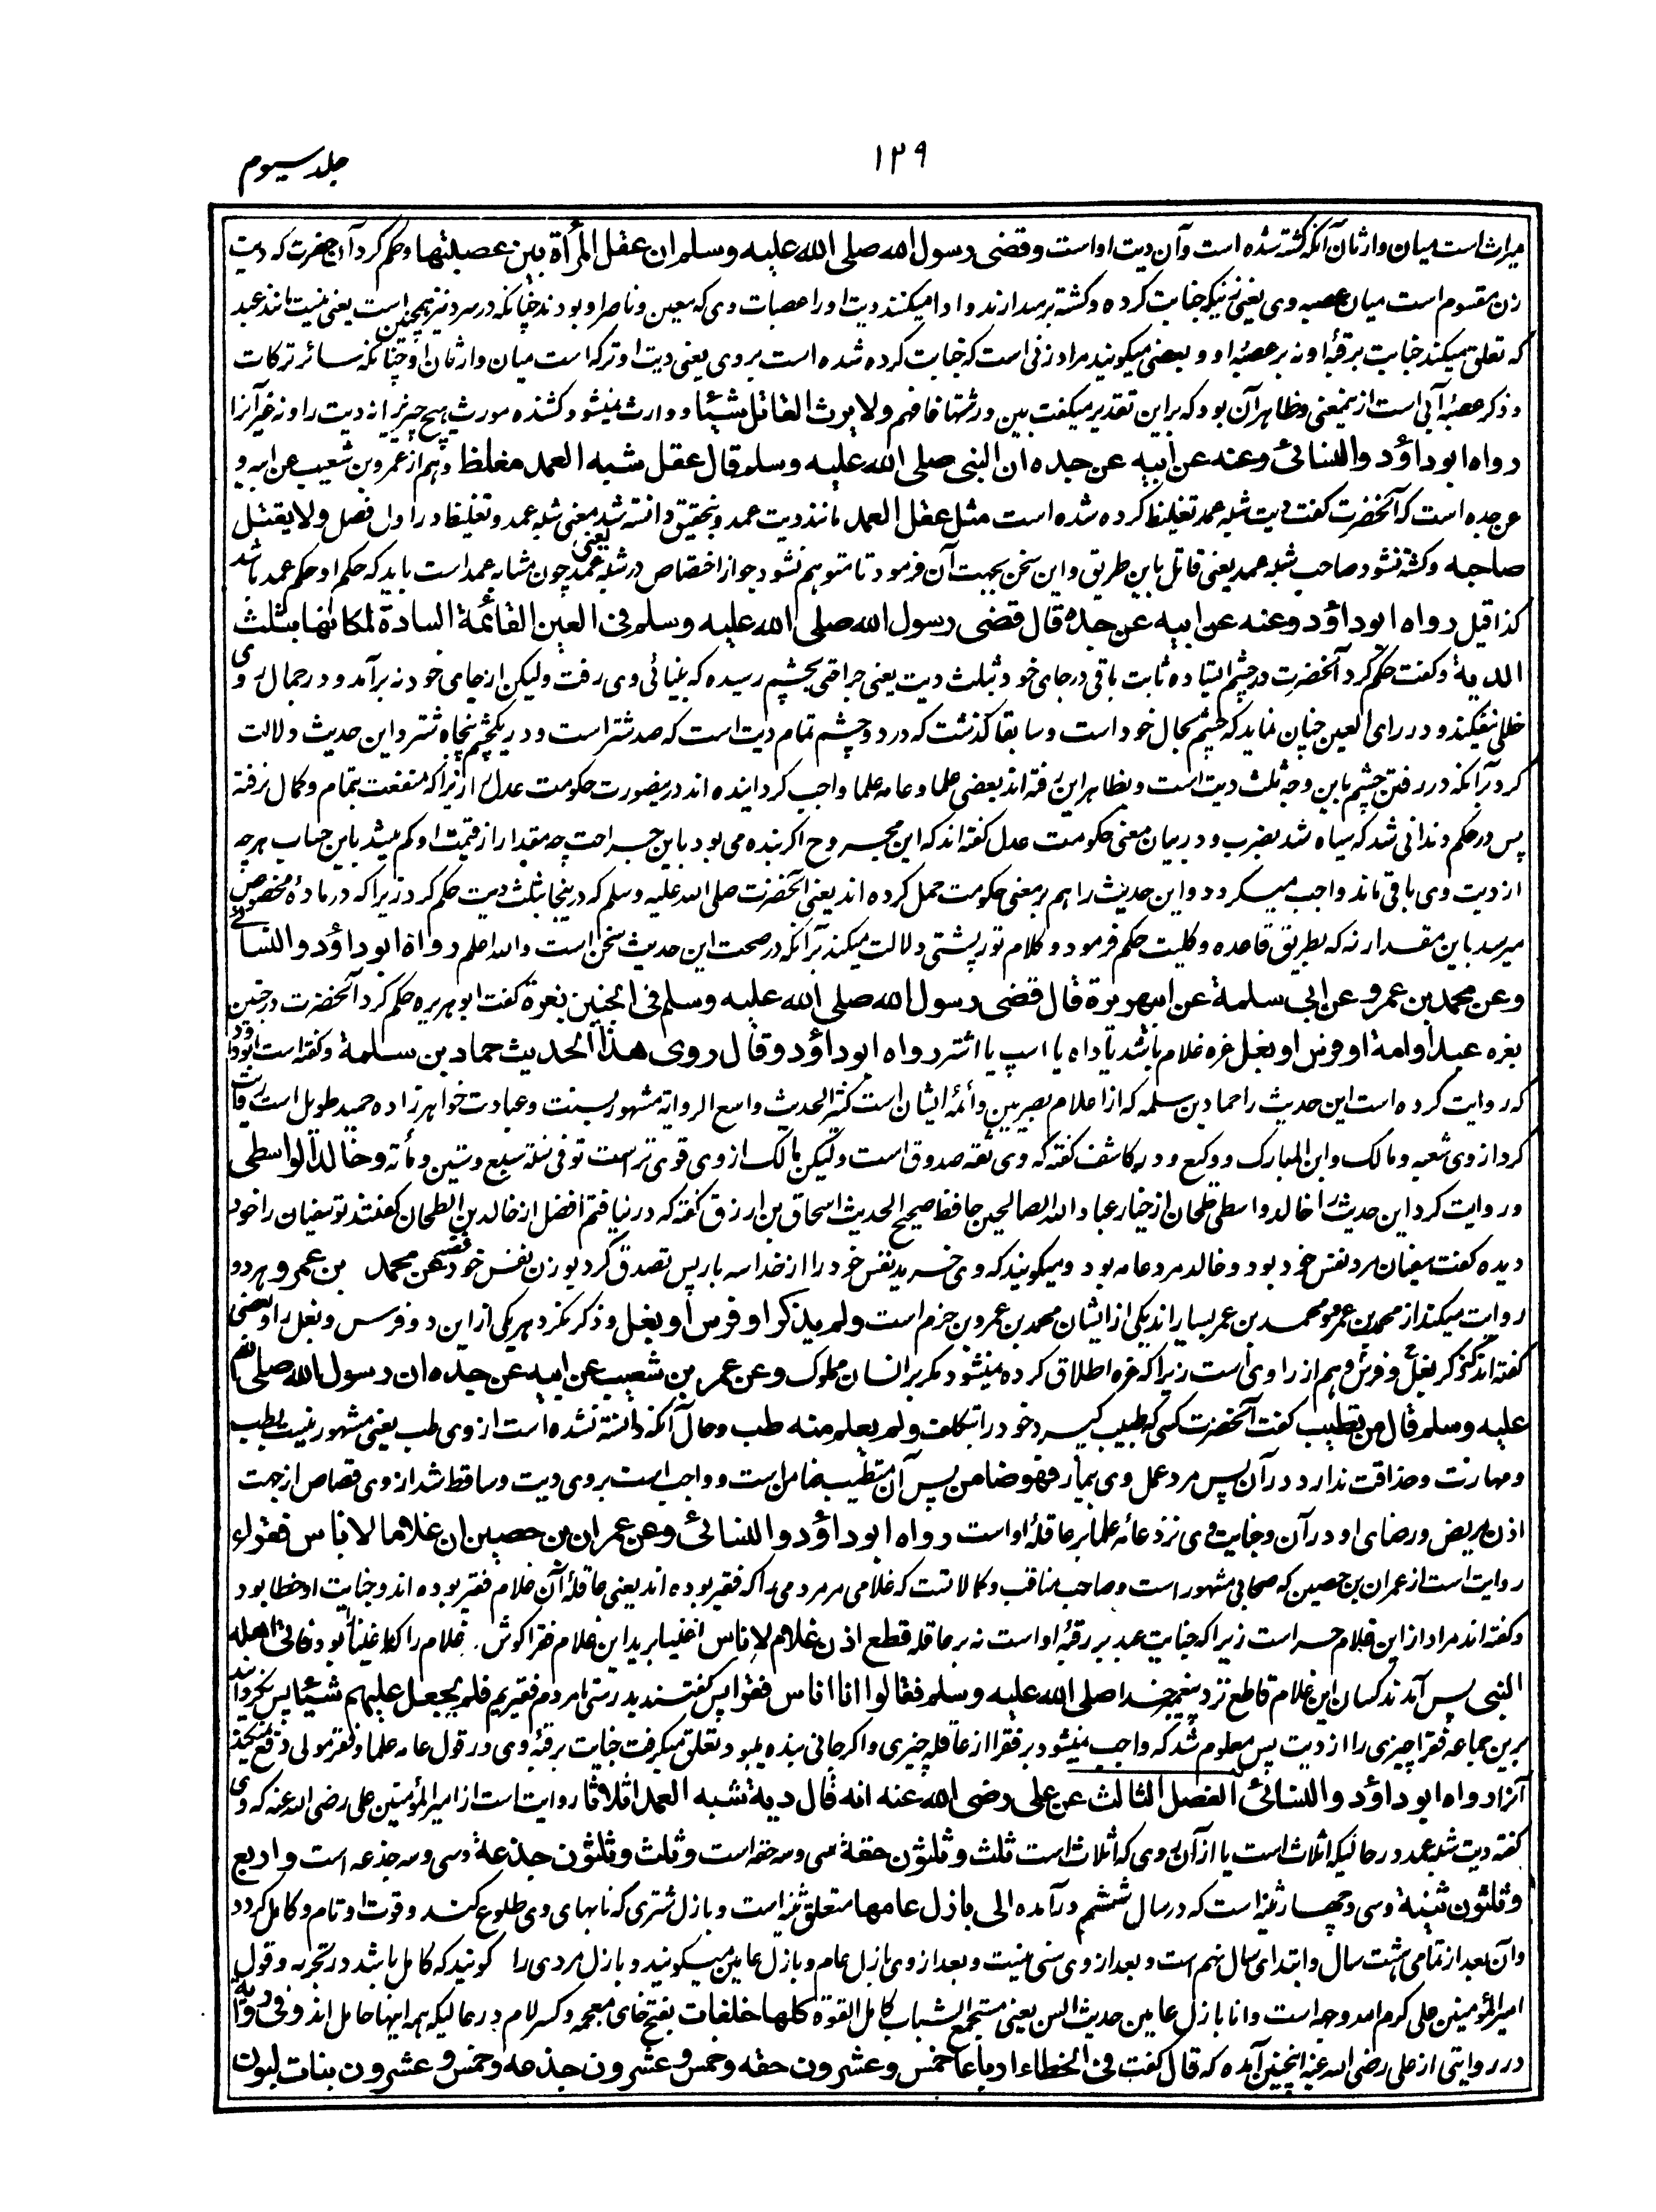 ۱۳۹
جلد سیوم
میراث است میان وارثان آنکه کشته شده است وآن دیت اواست وقضی رسول الله صلی الله علیه وسلم ان عقل المرأة بین عصبتها وحکم کرد آن حضرت که دیت
زن مقسوم است میان عصبه وی یعنی زنیکه جنایت کرده وکشته برمیدارند وادا میکنند دیت اورا عصبات وی که معین وناصر او بودند چنانکه در مرد نیز همچنین است یعنی نیست مانند عبد
که تعلق میگیرد جنایت برقبهٔ او نه بر عصبهٔ او و بعضی میگویند مراد زنی است که جنایت کرده شده است بروی یعنی دیت او ترکه است میان وارثان او چنانکه سائر ترکات
وذکر عصبه آبی است ازینمعنی وظاهر آن بود که براین تقدیر میگفت بین ورثتها فافهم ولا یرث القاتل شیئا ووارث نمیشود کشنده مورث هیچ چیزیرا نه دیت را ونه غیر آنرا
رواه ابوداؤد والنسائی وعنه عن ابیه عن جده ان النبی صلی الله علیه وسلم قال عقل شبه العمد مغلظ وهم از عمرو بن شعیب عن ابیه و
عن جده است که آنحضرت گفت دیت شبه عمد تغلیظ کرده شده است مثل عقل العمد مانند دیت عمد وبتحقیق دانسته شد معنی شبه عمد وتغلیظ در اول فصل ولا یقتل
صاحبه وکشته نشود صاحب شبه عمد یعنی قاتل باین طریق واین سخن بجهت آن فرمود تا متوهم نشود جواز اقتصاص در شبه عمد یعنی چون مشابه عمد است باید که حکم او حکم عمد باشد
کذا قیل رواه ابوداؤد وعنه عن ابیه عن جده قال قضی رسول الله صلی الله علیه وسلم فی العین القائمة السادة لمکانها بثلث
الدیة وگفت حکم کرد آنحضرت در چشم ایستاده ثابت باقی در جای خود بثلث دیت یعنی جراحتی بچشم رسیده که بینائی وی رفت ولیکن از جای خود نه برآمد ودر جمال وی
خللی نیفکند ودر رای العین چنان نماید که چشم بحال خود است وسابقا گذشت که در دو چشم تمام دیت است که صد شتر است ودر یکچشم پنجاه شتر واین حدیث دلالت
کرد برآنکه در رفتن چشم باین وجه ثلث دیت است وبظاهر این رفته اند بعضی علما وعامه علما واجب گردانیده اند درینصورت حکومت عدل ازیراکه منفعت بتمام وکمال نرفته
پس در حکم دندانی شد که سیاه شد بضرب ودر بیان معنی حکومت عدل گفته اند که این مجروح اگر بنده می بود باین جراحت چه مقدار از قیمت او کم میشد باین حساب هرچه
از دیت وی باقی ماند واجب میگردد واین حدیث را هم بر معنی حکومت حمل کرده اند یعنی آنحضرت صلی الله علیه وسلم که درینجا بثلث دیت حکم کرد زیراکه در مادهٔ مخصوص
میرسد باین مقدار نه که بطریق قاعده وکلیت حکم فرمود وکلام تورپشتی دلالت میکند برآنکه در صحت این حدیث سخن است والله اعلم رواه ابوداؤد والنسائی
وعن محمد بن عمرو عن ابی سلمة عن ابی هریرة قال قضی رسول الله صلی الله علیه وسلم فی الجنین بغرة گفت ابو هریره حکم کرد آنحضرت در جنین
بغره عبد او امة او فرس او بغل غره غلام باشد یا داه یا اسپ یا استر رواه ابوداؤد وقال روی هذا الحدیث حماد بن سلمة وگفته است ابوداؤد
که روایت کرده است این حدیث را حماد بن سلمه که از اعلام بصریین وأئمه ایشان است کثیر الحدیث واسع الروایة مشهور بسنت وعبادت خواهرزاده حمید طویل است روایت
کرد از وی شعبه ومالک وابن المبارک ووکیع ودر کاشف گفته که وی ثقه صدوق است ولیکن مالک از وی قوی تر است توفی سنة سبع وستین ومأته وخالد الواسطی
وروایت کرد این حدیث را خالد واسطی طحان از خیار عباد الله الصالحین حافظ صحیح الحدیث اسحاق بن ازرق گفته که در نیافتم افضل از خالد بن الطحان گفتند تو سفیان را خود
دیده گفت سفیان مرد نفس خود بود وخالد مرد عامه بود ومیگویند که وی خرید نفس خود را از خدا سه بار پس تصدق کرد بوزن نفس خود فضه عن محمد بن عمرو هردو
روایت میکنند از محمد بن عمرو ومحمد بن عمر بسیار اند یکی از ایشان محمد بن عمرو بن حزم است ولم یذکر او فرس او بغل وذکر نکرد هر یکی ازین دو فرس وبغل را وبعضی
گفته اند که ذکر بغل وفرس وهم از راوی است زیراکه غره اطلاق کرده نمیشود مگر بر انسان مملوک وعن عمرو بن شعیب عن ابیه عن جده ان رسول الله صلی الله
علیه وسلم قال من تطبب گفت آنحضرت کسی که طبیب گیرد خود را بتکلف ولم یعلم منه طب وحال آنکه دانسته نشده است از وی طب یعنی مشهور نیست بطب
ومهارت وحذاقت ندارد در آن پس مرد عمل وی بیمار فهو ضامن پس آن متطبب ضامن است وواجب است بروی دیت وساقط شد از وی قصاص از جهت
اذن مریض ورضای او در آن وجنایت وی نزد عامه علما بر عاقلهٔ اواست رواه ابوداؤد والنسائی وعن عمران بن حصین ان غلاما لاناس فقراء
روایت است از عمران بن حصین که صحابی مشهور است وصاحب مناقب وکمالات است که غلامی مر مردمی را که فقیر بوده اند یعنی عاقلهٔ آن غلام فقیر بوده اند وجنایت او خطا بود
وگفته اند مراد ازین غلام حر است زیراکه جنایت عبد بر رقبهٔ اواست نه بر عاقله قطع اذن غلام لاناس اغنیاء برید این غلام فقرا گوش غلام را که اغنیا بود فاتی اهله
النبی پس آمدند کسان این غلام قاطع نزد پیغمبر خدا صلی الله علیه وسلم فقالوا انا اناس فقراء پس گفتند بدرستی ما مردم فقیریم فلم یجعل علیهم شیئا پس نگردانید
برین جماعه فقرا چیزی را از دیت پس معلوم شد که واجب نمیشود بر فقرا از عاقله چیزی واگر جانی بنده میبود تعلق میگرفت جنایت برقبهٔ وی در قول عامه علما وفقر مولی دفع نمیکند
آنرا رواه ابوداؤد والنسائی الفصل الثالث عن علی رضی الله عنه انه قال دیة شبه العمد اثلاثا روایت است از امیر المؤمنین علی رضی الله عنه که وی
گفته دیت شبه عمد در حالیکه اثلاث است یا از آن روی که اثلاث است ثلث وثلثون حقة سی وسه حقه است وثلث وثلثون جذعة وسی وسه جذعه است واربع
وثلثون ثنیة وسی وچهار ثنیه است که در سال ششم درآمده الی بازل عامها متعلق بثنیه است وبازل شتری که نابهای وی طلوع کند وقوت او تام وکامل گردد
وآن بعد از تمامی هشت سال وابتدای سال نهم است وبعد از وی سنی نیست وبعد از وی بازل عام وبازل عامین میگویند وبازل مردی را گویند که کامل باشد در تجربه وقول
امیر المؤمنین علی کرم الله وجهه است وانا بازل عامین حدیث السن یعنی مستجمع الشباب کامل القوة کلها خلفات بفتح خای معجمه وکسر لام در حالیکه همه اینها حامل اند وفی روایة
در روایتی از علی رضی الله عنه اینچنین آمده که قال گفت فی الخطاء ارباعا خمس وعشرون حقه وخمس وعشرون جذعه وخمس وعشرون بنات لبون